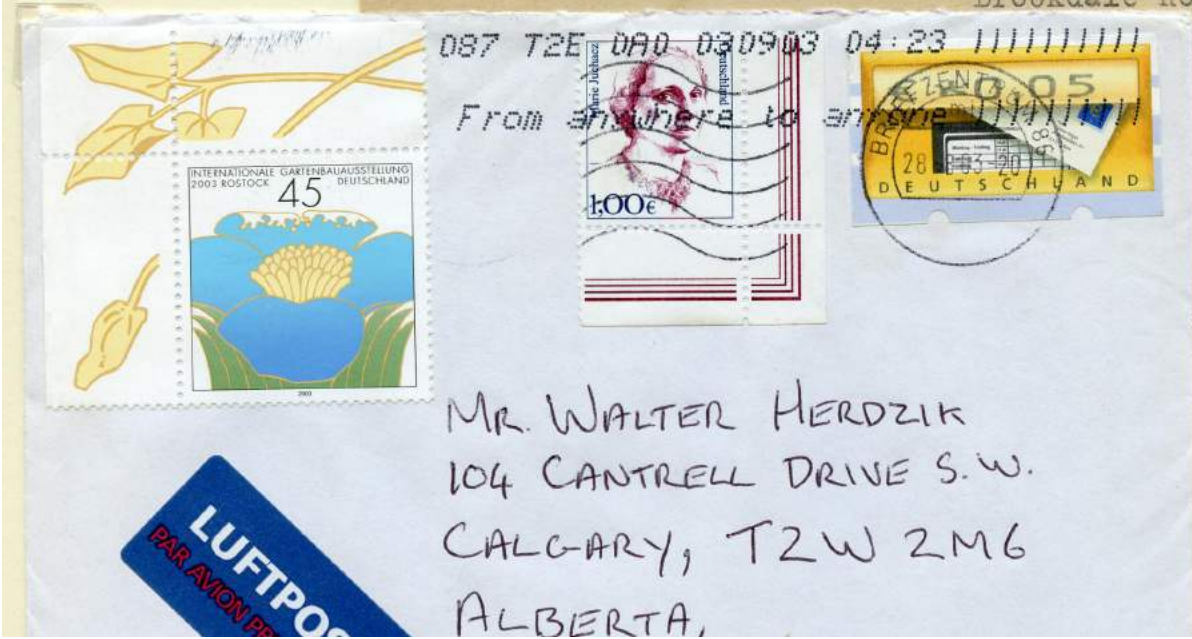 Brookdale
087 T2E 0A0 030903 04:23
From anywhere to anyone
INTERNATIONALE GARTENBAUAUSSTELLUNG
2003 ROSTOCK DEUTSCHLAND
45
2003
Marie Juchacz
Deutschland
1,00€
0.05
BRIEFZENTR
28 03-20
DEUTSCHLAND
MR. WALTER HERDZIK
104 CANTRELL DRIVE S.W.
CALGARY, T2W 2M6
ALBERTA,
LUFTPOS
PAR AVION PR